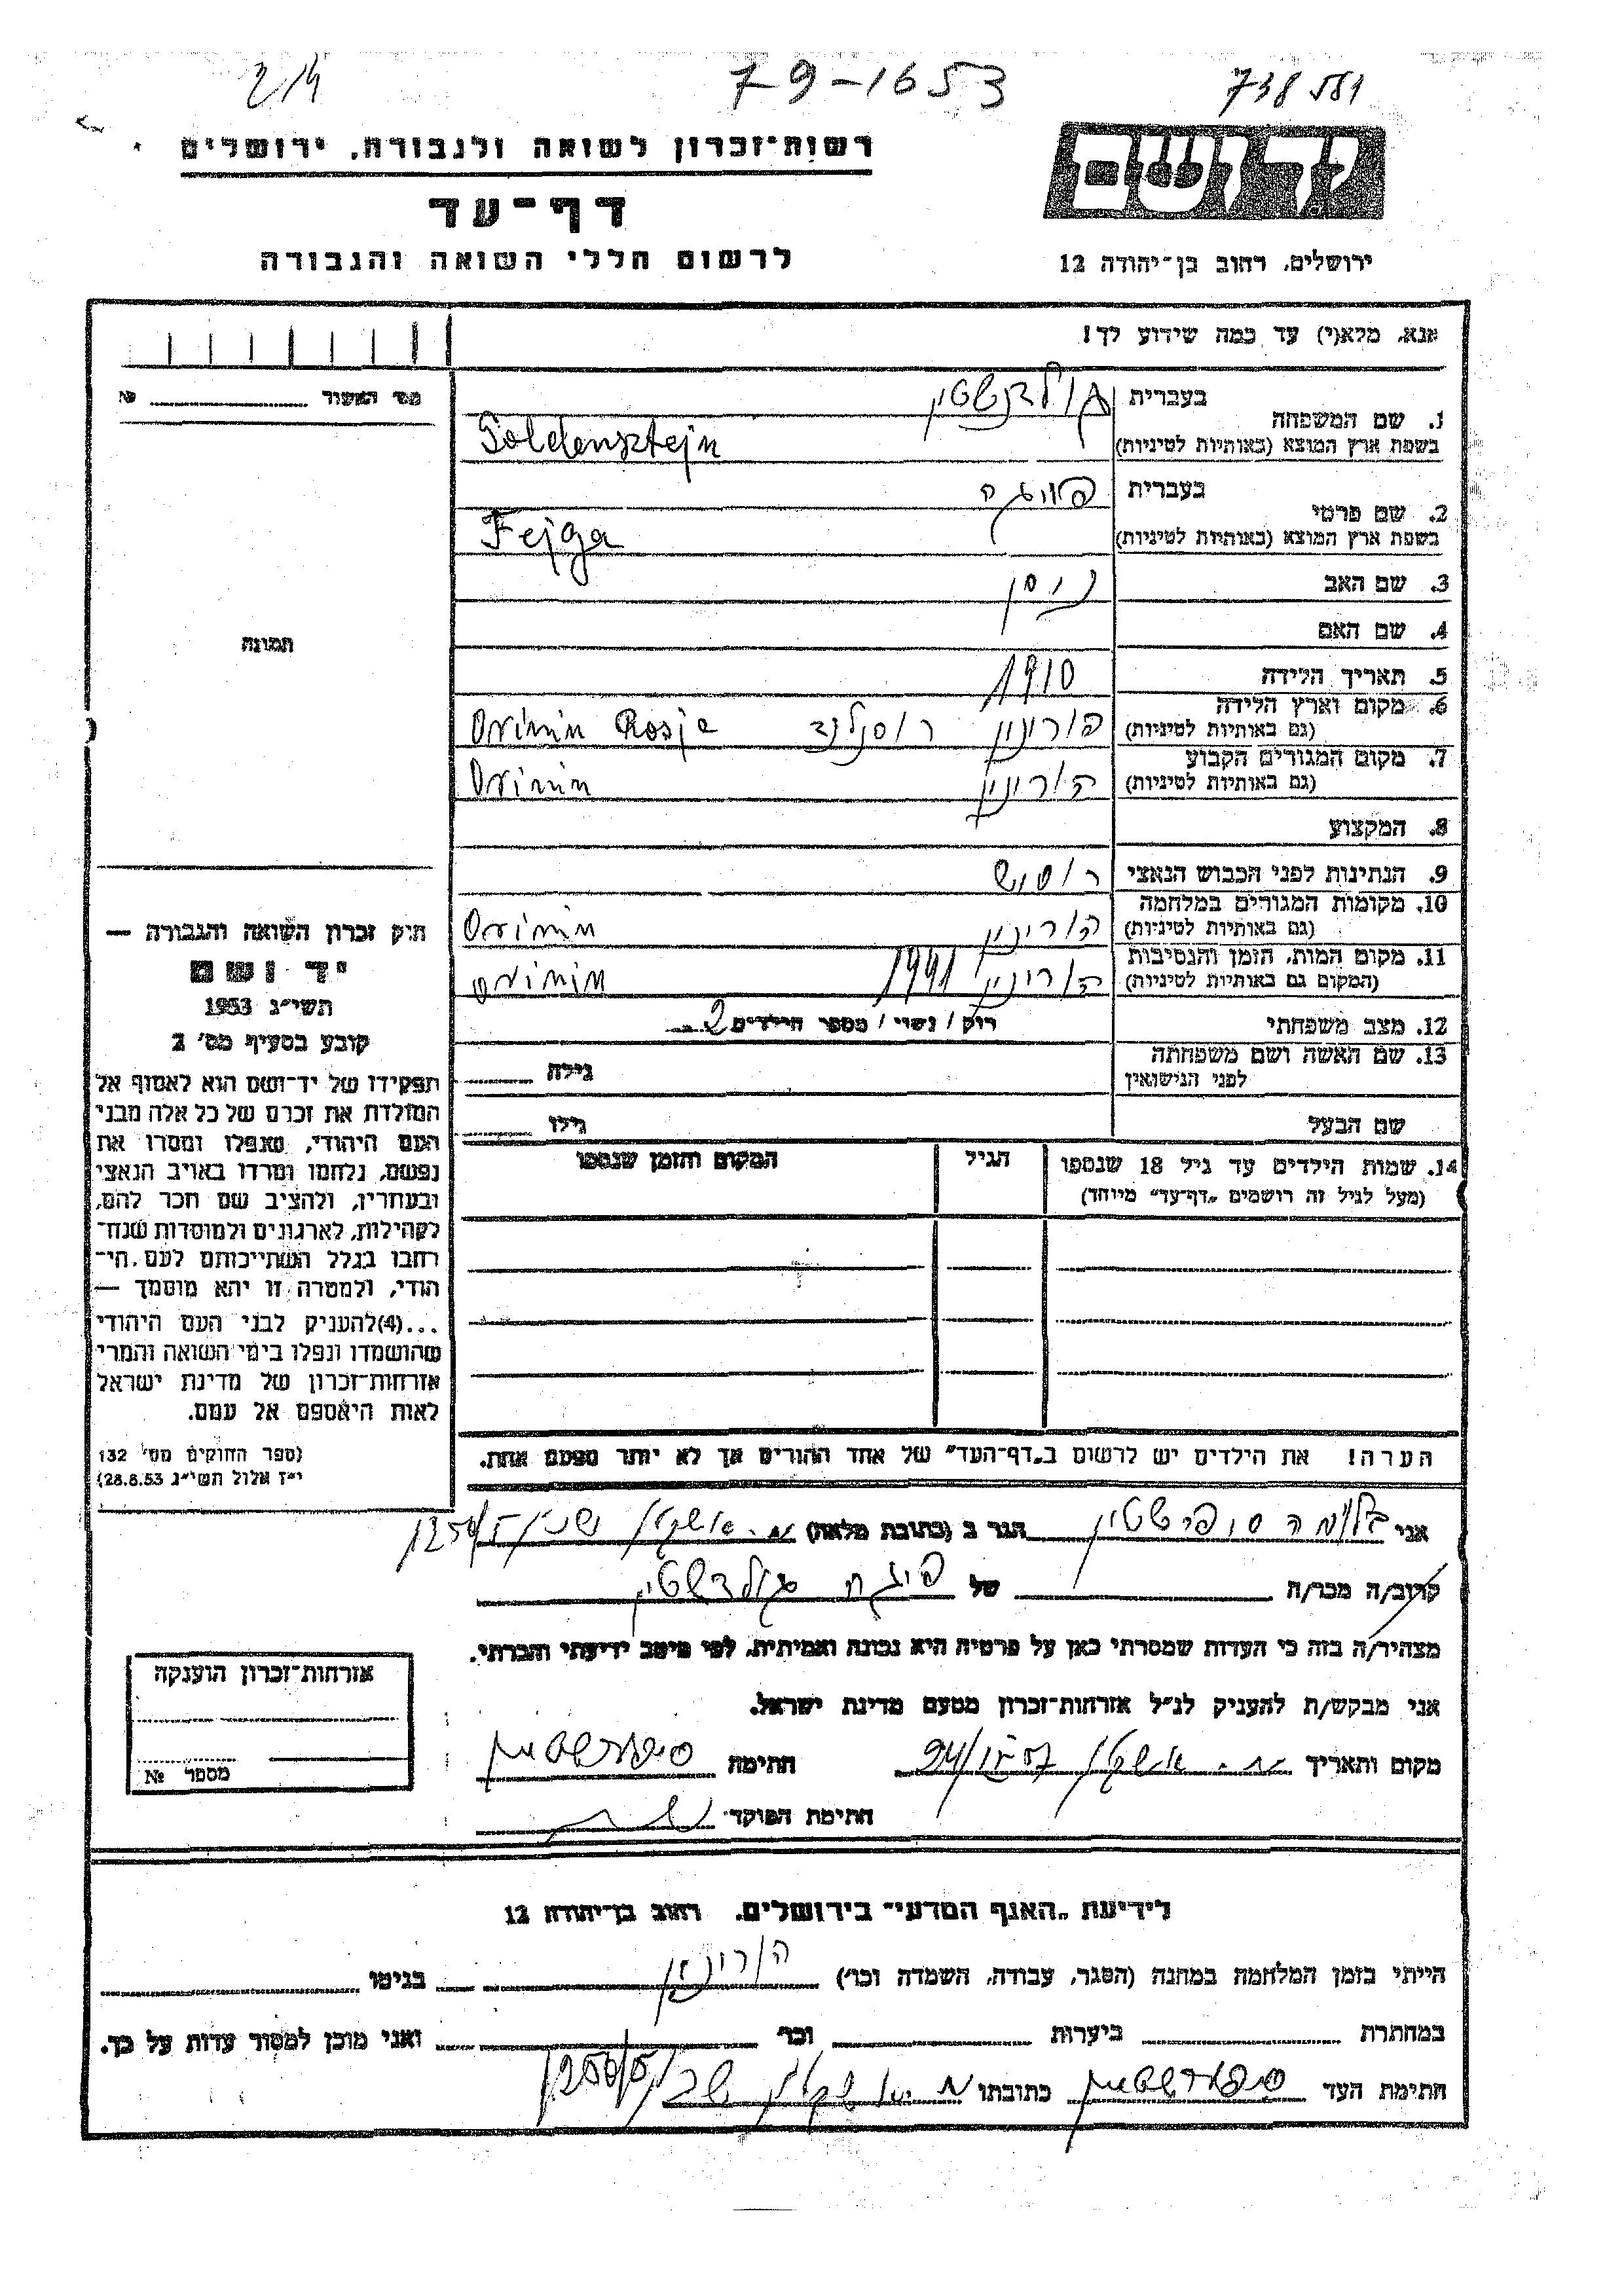 214
79-1653
738581
יד ושם
רשות־זכרון לשואה ולגבורה, ירושלים
דף־עד
לרשום חללי השואה והגבורה
ירושלים, רחוב בן־יהודה 12
אנא, מלא(י) עד כמה שידוע לך!
מס' האשור №
1. שם המשפחה
בעברית גולדנשטיין
בשפת ארץ המוצא (באותיות לטיניות) Goldensztejn
2. שם פרטי
בעברית פייגה
בשפת ארץ המוצא (באותיות לטיניות) Fejga
3. שם האב ניסן
4. שם האם
תמונה
5. תאריך הלידה 1910
6. מקום וארץ הלידה
(גם באותיות לטיניות) הורינין רוסלנד Orinin Rosja
7. מקום המגורים הקבוע
(גם באותיות לטיניות) הורינין Orinin
8. המקצוע
9. הנתינות לפני הכבוש הנאצי
10. מקומות המגורים במלחמה
(גם באותיות לטיניות) הורינין Orinin
11. מקום המות, הזמן והנסיבות
(המקום גם באותיות לטיניות) הורינין 1941 Orinin
12. מצב משפחתי רוק / נשוי / מספר הילדים 2
13. שם האשה ושם משפחתה
לפני הנישואין גילה
שם הבעל גילו
14. שמות הילדים עד גיל 18 שנספו
(מעל לגיל זה רושמים „דף־עד" מיוחד)
הגיל
המקום והזמן שנספו
חוק זכרון השואה והגבורה —
יד ושם
תשי״ג 1953
קובע בסעיף מס' 2
תפקידו של יד־ושם הוא לאסוף אל
המולדת את זכרם של כל אלה מבני
העם היהודי, שנפלו ומסרו את
נפשם, נלחמו ומרדו באויב הנאצי
ובעוזריו, ולהציב שם וזכר להם,
לקהילות, לארגונים ולמוסדות שנח־
רבו בגלל השתייכותם לעם הי־
הודי, ולמטרה זו יהא מוסמך —
...(4) להעניק לבני העם היהודי
שהושמדו ונפלו בימי השואה והמרי
אזרחות־זכרון של מדינת ישראל
לאות היאספם אל עמם.
(ספר החוקים מס' 132
י״ז אלול תשי״ג 28.8.53)
הערה! את הילדים יש לרשום ב„דף־העד" של אחד ההורים אך לא יותר מפעם אחת.
אני הגר ב (כתובת מלאה) 1250/5
קרוב/ה מכר/ה של פייגה גולדשטיין
מצהיר/ה בזה כי העדות שמסרתי כאן על פרטיה היא נכונה ואמיתית, לפי מיטב ידיעתי והכרתי.
אני מבקש/ת להעניק לנ״ל אזרחות־זכרון מטעם מדינת ישראל.
מקום ותאריך חתימה
חתימת הפוקד
אזרחות־זכרון הוענקה
מספר №
לידיעת „האגף המדעי" בירושלים, רחוב בן־יהודה 12
הייתי בזמן המלחמה במחנה (הסגר, עבודה, השמדה וכו') הורינין בגיטו
במחתרת ביערות וכו' ואני מוכן למסור עדות על כך.
חתימת העד כתובתו 1250/5